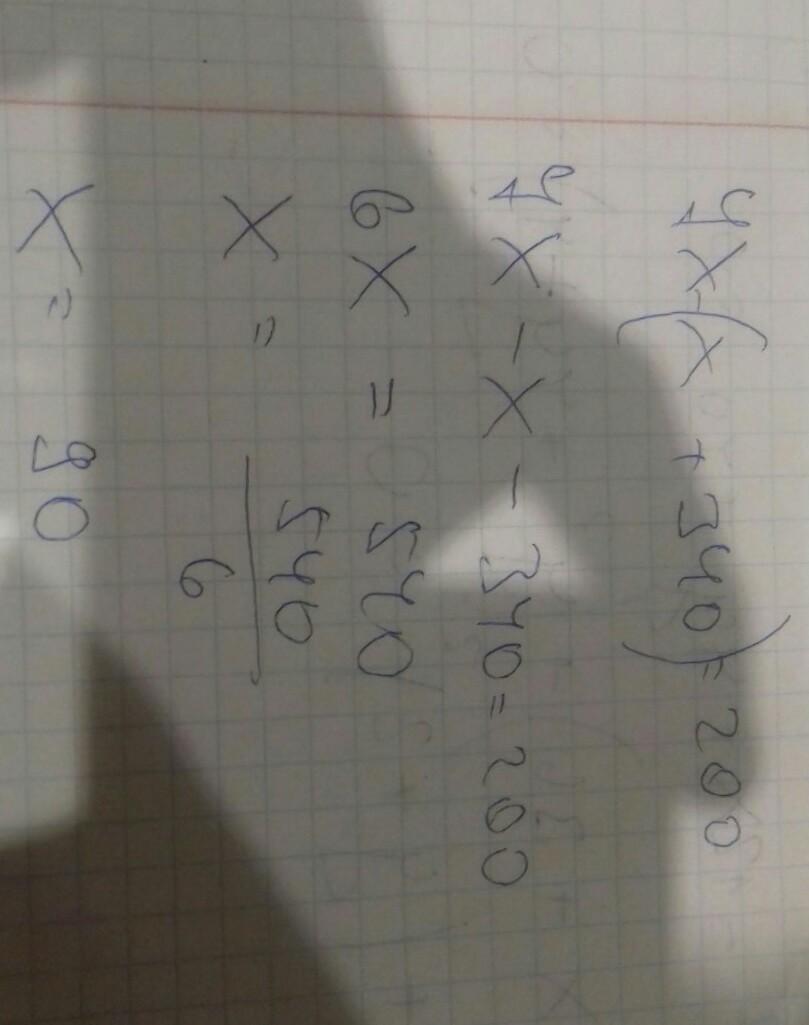 7x-(x+340)=200
7x-x-340=200
6x=540
x=540/6
x=90